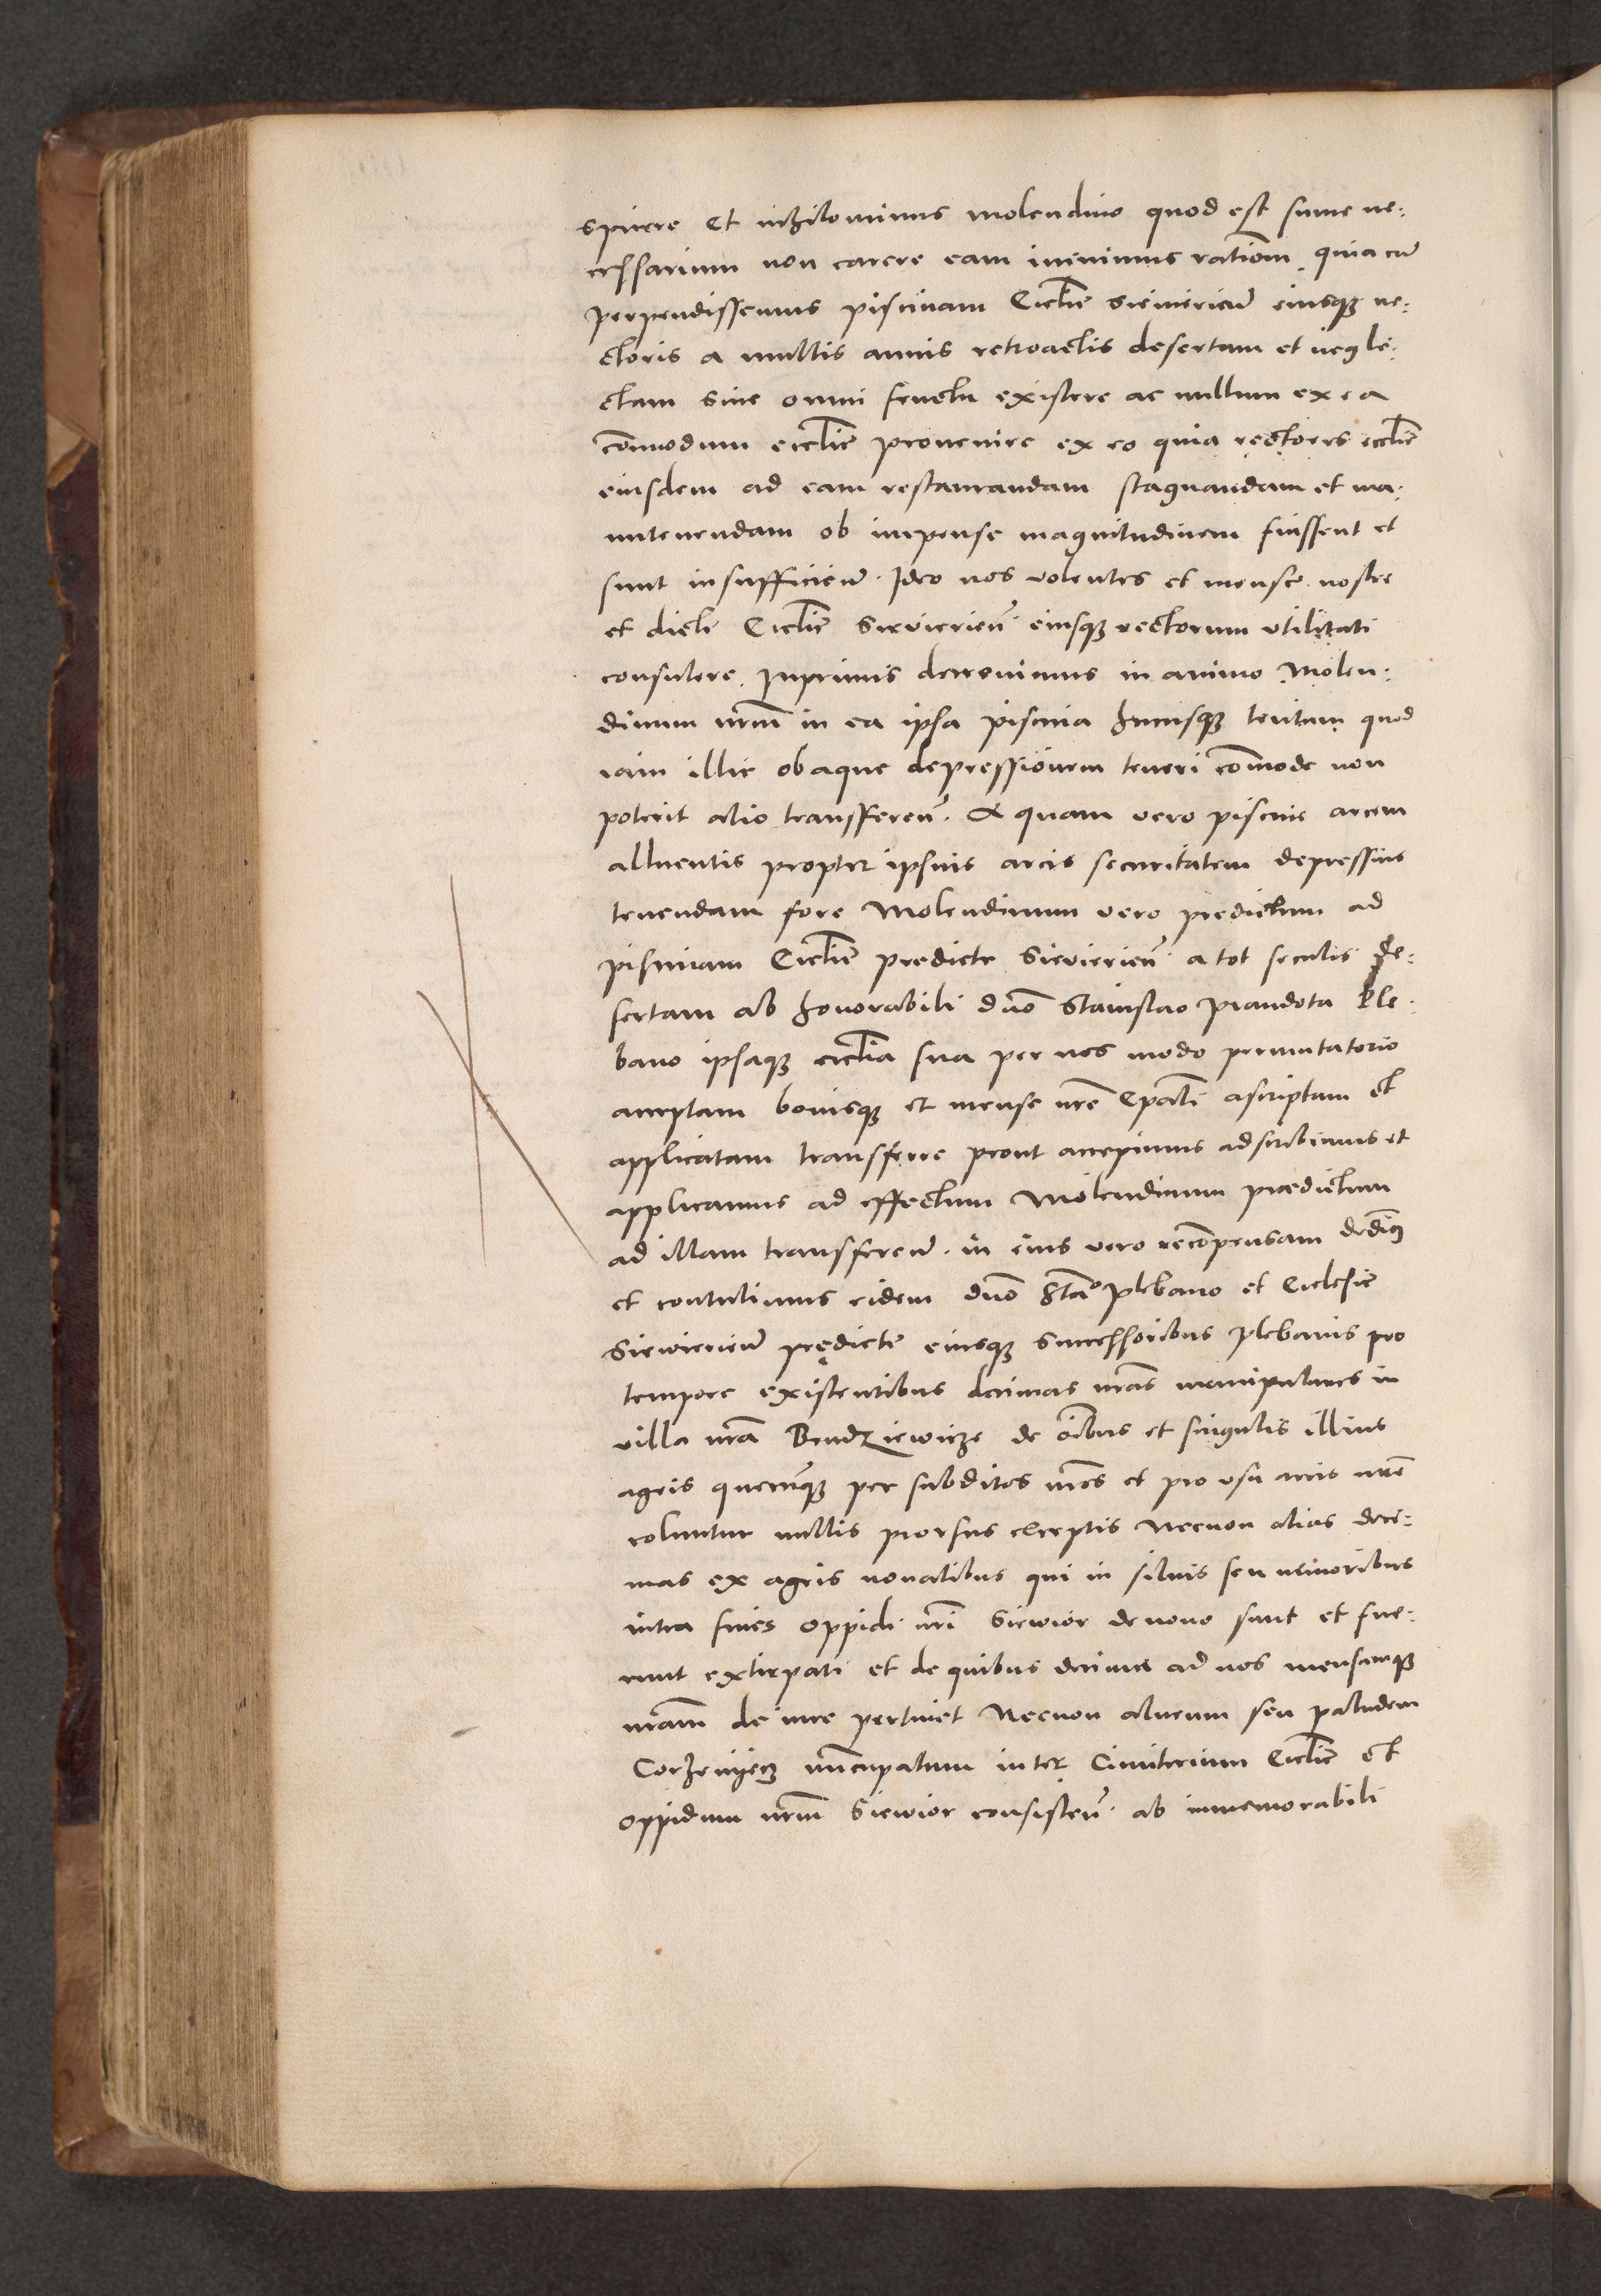 spicere et nichilominus molendino quod est sume ne:
cessarium non carere eam inivimus rationem quia cum
perpendissemus piscinam Ecclie Sieivierien eiusque re:
ctoris a multis annis retroactis desertam et negle:
ctam sine omni fructu existere ac nullum ex ea
comodum ecclie provenire ex eo quia rectores ecclie
eiusdem ad eam restaurandam stagnandam et ma:
nutenendam ob impense magnitudinem fuissent et
sunt insufficien. Ideo nos volentes et mense nostre
et dicte Ecclie Sievierien eiusque rectorum utilitati
consulere, Inprimis decrevimus in animo Molen:
dinum nrm in ea ipsa piscina hucusque tentum quod
iam illic ob aque depressionem teneri comode non
poterit alio transferen. Aquam vero piscine arcem
alluentis propter ipsius arcis securitatem depressius
tenendam fore Molendinum vero predictum ad
piscinam Ecclie predicte Sievierien a tot seculis de:
sertam ab honorabili dno Stanislao Prandota Ple:
bano ipsaque ecclia sua per nos modo permutatorio
acceptam bonisque et mense nre Epali ascriptam et
applicatam transferre prout accepimus adscribimus et
applicamus ad effectum Molendinum predictum
ad illam transferen. in eius vero recompensam dedimus
et contulimus eidem dno Stao plebano et Ecclesie
Siewierien predicte eiusque successoribus plebanis pro
tempore existentibus decimas nras manipulares in
villa nra Bendziewicze de oibus et singulis illius
agris quecunque per subditos nros et pro usu arcis nre
coluntur nullis prorsus exceptis Necnon alias deci:
mas ex agris novalibus qui in silvis seu nemoribus
intra fines oppidi nri Siewior de novo sunt et fue:
runt extirpati et de quibus decima ad nos mensamque
nram de iure pertinet Necnon alveum seu paludem
nuncupatum inter Cimiterium Ecclie et
oppidum nrm Siewior consisten. ab immemorabili